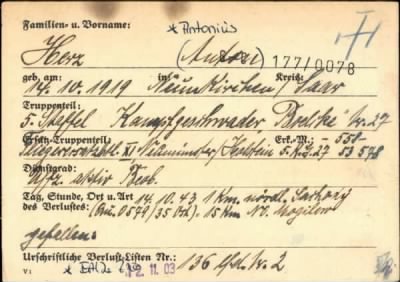 Familien- u. Vorname: * Antonius
Herz (Anton) 177/0078
geb. am: in Kreis:
14. 10. 1919 Neunkirchen / Saar
Truppenteil:
5. Staffel Kampfgeschwader Boelcke Nr. 27
Ersatz-Truppenteil: Erk.-M.: - 558 -
XI Neumünster / 5. K.G. 27 53 578
Dienstgrad:
Uffz. aktiv Beob.
Tag, Stunde, Ort u. Art 14. 10. 43 1 km. nördl.
des Verlustes: 15 km NO.
gefallen.
Urschriftliche Verlust-Listen Nr.: 136 lfd. Nr. 2
V 1 12. 11. 03